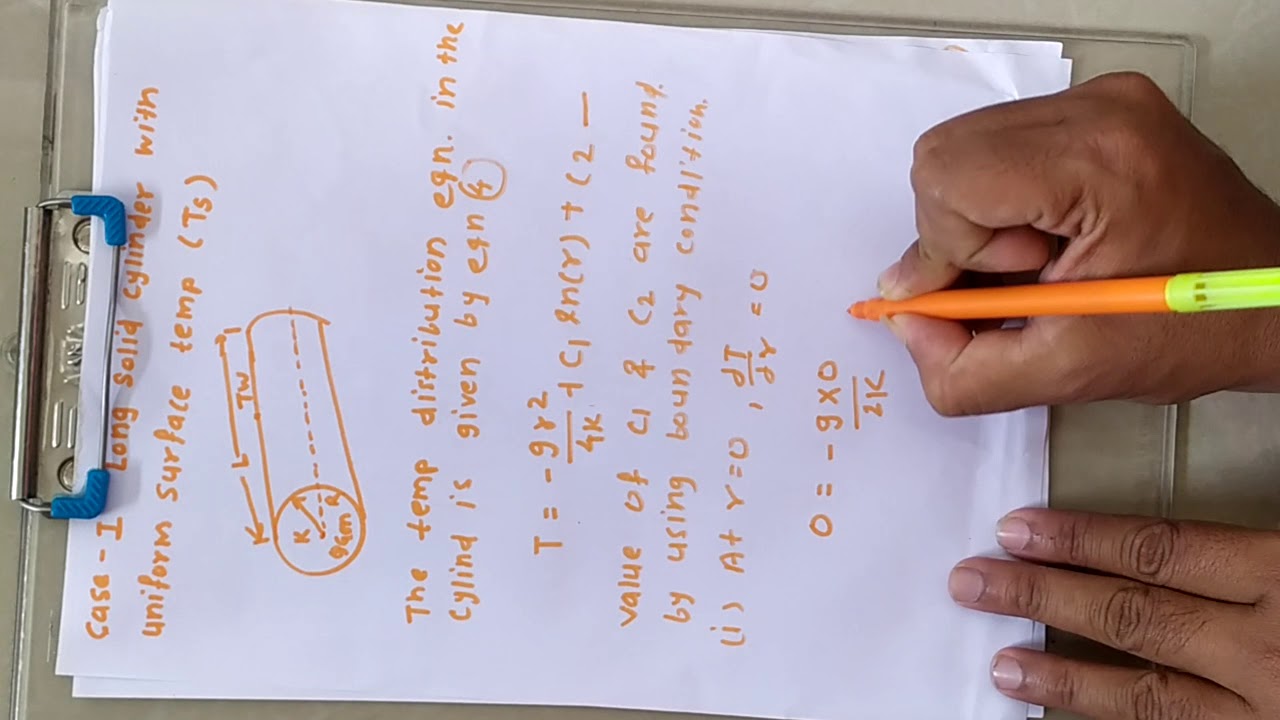 Case - I Long Solid Cylinder with
uniform surface temp (Ts)
L
Tw
K
R
The temp distribution eqn. in the
Cylind is given by eqn (4)
T = -gr²/4K + C1 ln(r) + C2 —
Value of C1 & C2 are found
by using boundary condition.
(i) At r=0, dT/dr = 0
0 = - g×0/2K